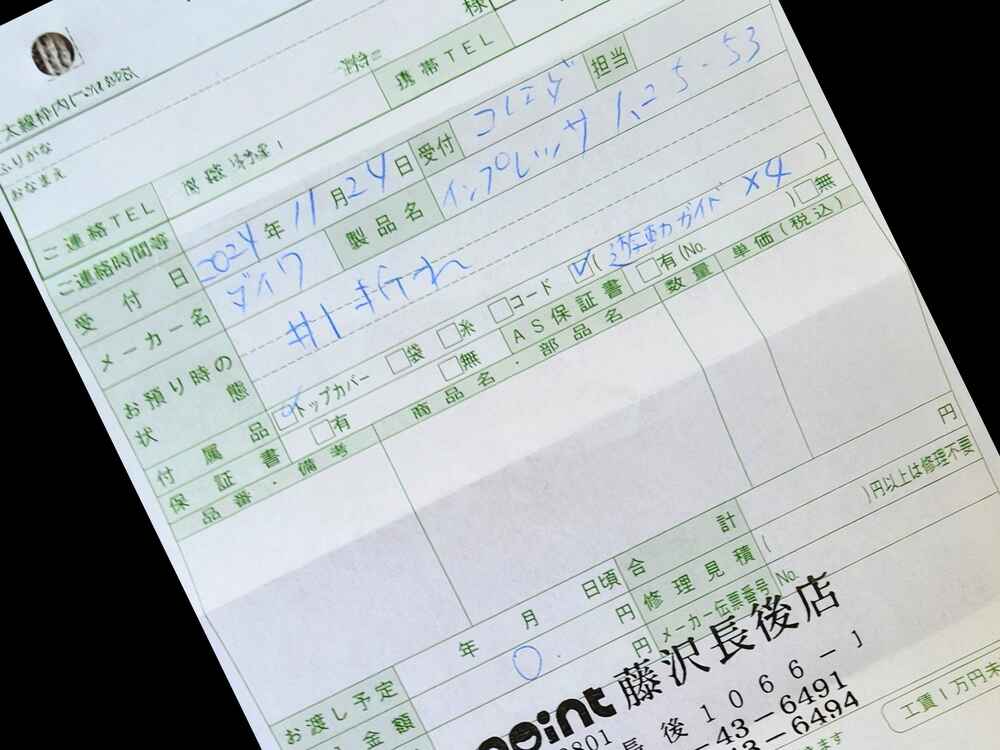 太線枠内に
ふりがな
おなまえ
様
ご連絡TEL
携帯TEL
ご連絡時間等
受付日 2024年 11月 24日 受付 担当
メーカー名 ダイワ 製品名 インプレッサ 1.25-53
お預り時の状態 #1 折れ
)
付属品 トップカバー □袋 □糸 □コード ☑( 遊動ガイド ×4 )
保証書 □有 □無 AS保証書 □有(No. ) □無
品番・備考 商品名・部品名 数量 単価(税込)
円
合計
お渡し予定 年 月 日頃 修理見積 ( )円以上は修理不要
金額 円 メーカー伝票番号 No.
0. 円
point 藤沢長後店
0801 長後1066-1
43-6491
43-6494
工賃1万円未
ます